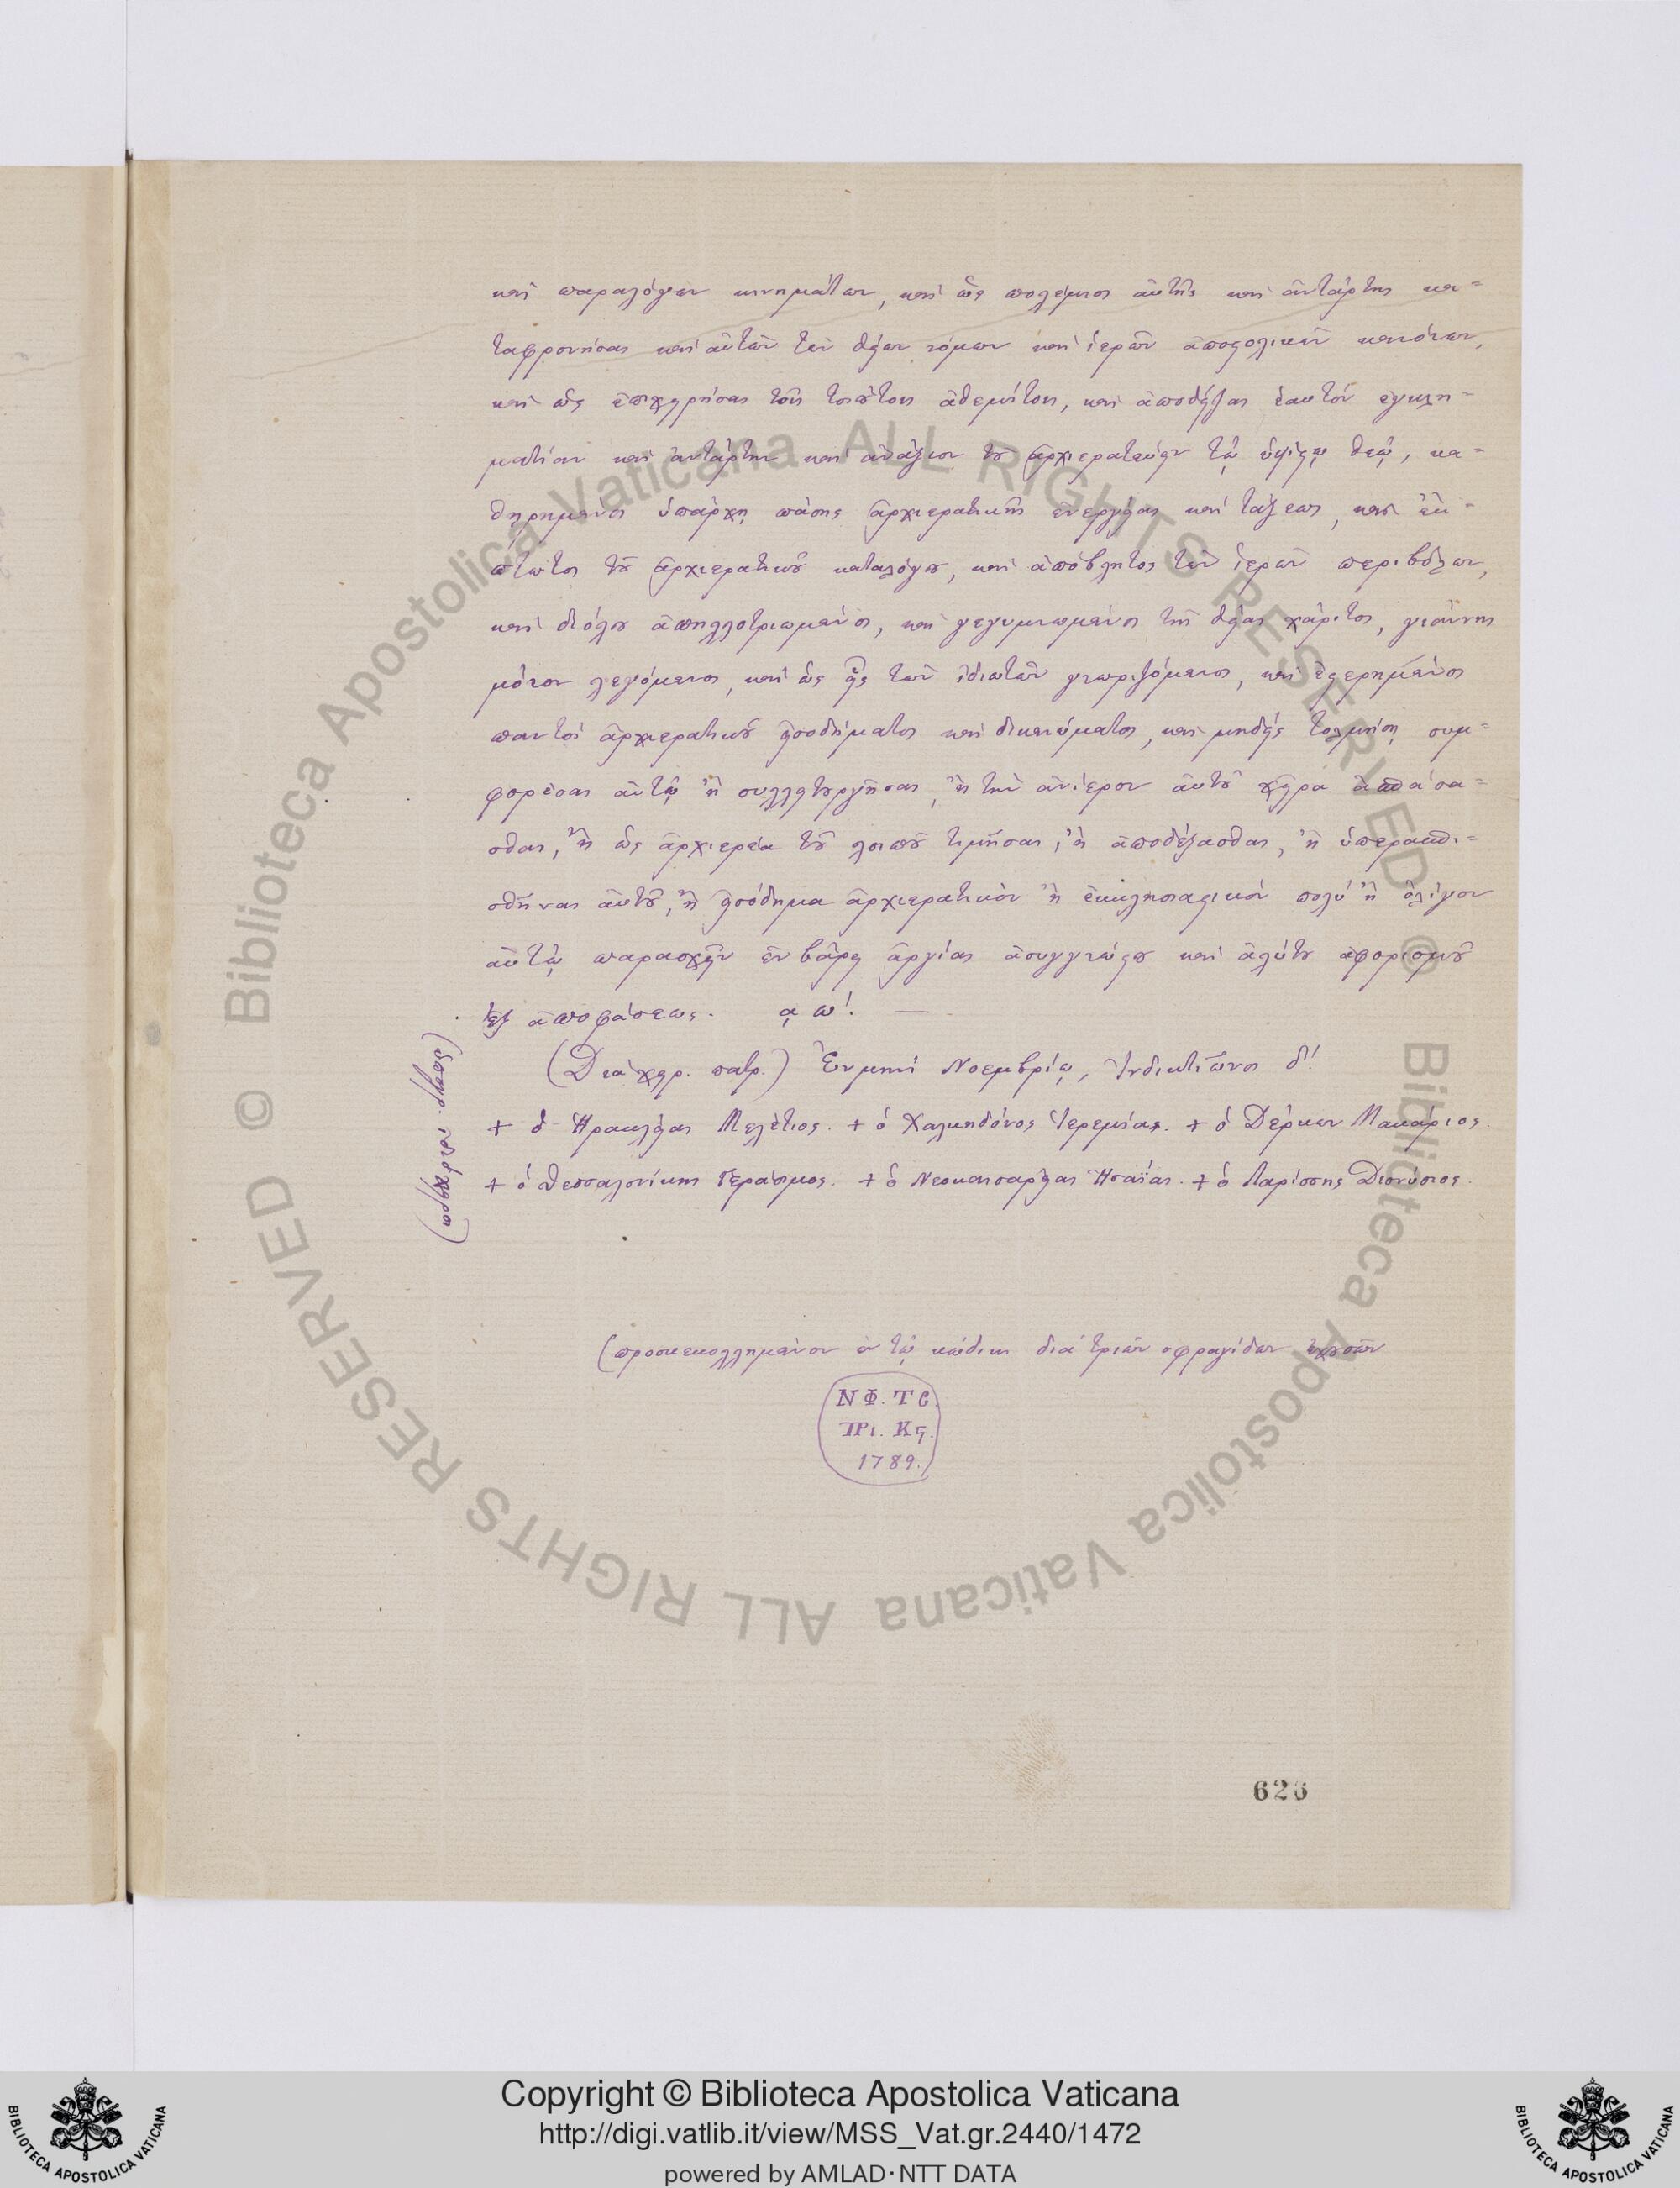 καὶ παραλόγων κινημάτων, καὶ ὡς πολέμιος αὐτῆς καὶ ἀντάρτης κα=
ταφρονήσας καὶ αὐτῶν τῶν θείων νόμων καὶ ἱερῶν ἀποστολικῶν κανόνων,
καὶ ὡς ἐπιχειρήσας τοῖς τοιούτοις ἀθεμίτοις, καὶ ἀποδείξας ἑαυτόν ἐγκλη=
ματίαν καὶ ἀντάρτην καὶ ἀνάξιον τοῦ ἀρχιερατεύειν τῷ ὑψίστῳ θεῷ, κα=
θηρημένος ὑπάρχῃ πάσης ἀρχιερατικῆς ἐνεργείας καὶ τάξεως, καὶ ἐκ=
πτωτος τοῦ ἀρχιερατικοῦ καταλόγου, καὶ ἀπόβλητος τῶν ἱερῶν περιβόλων,
καὶ διόλου ἀπηλλοτριωμένος, καὶ γεγυμνωμένος τῆς θείας χάριτος, γιάννης
μόνον λεγόμενος, καὶ ὡς εἷς τῶν ἰδιωτῶν γνωριζόμενος, καὶ ἐστερημένος
παντὸς ἀρχιερατικοῦ εἰσοδήματος καὶ δικαιώματος, καὶ μηδεὶς τολμήσῃ συμ=
φορέσαι αὐτῷ ἢ συλλειτουργῆσαι, ἢ τὴν ἀνίερον αὐτοῦ χεῖρα ἀσπάσα=
σθαι, ἢ ὡς ἀρχιερέα τοῦ λοιποῦ τιμῆσαι, ἢ ἀποδέξασθαι, ἢ ὑπερασπι=
σθῆναι αὐτοῦ, ἢ εἰσόδημα ἀρχιερατικὸν ἢ ἐκκλησιαστικὸν πολὺ ἢ ὀλίγον
αὐτῷ παρασχεῖν ἐν βάρει ἀργίας ἀσυγγνώστου καὶ ἀλύτου ἀφορισμοῦ
ἐξ ἀποφάσεως. αω΄. —
(Διὰ χειρ. πατρ.) Ἐν μηνὶ Νοεμβρίῳ, Ἰνδικτιῶνος δ΄.
+ ὁ Ἡρακλείας Μελέτιος. + ὁ Χαλκηδόνος Ἱερεμίας. + ὁ Δέρκων Μακάριος.
+ ὁ Θεσσαλονίκης Γεράσιμος. + ὁ Νεοκαισαρείας Ἡσαΐας. + ὁ Λαρίσσης Διονύσιος.
(προσκεκολλημένον ἐν τῷ κώδικι διὰ τριῶν σφραγίδων ἐχουσῶν
ΝΦ. ΤϹ.
ΠΡι. Κς.
1789.
626
© Biblioteca Apostolica Vaticana ALL RIGHTS RESERVED © Biblioteca Apostolica Vaticana ALL RIGHTS RESERVED
BIBLIOTECA APOSTOLICA VATICANA
Copyright © Biblioteca Apostolica Vaticana
http://digi.vatlib.it/view/MSS_Vat.gr.2440/1472
powered by AMLAD·NTT DATA
BIBLIOTECA APOSTOLICA VATICANA